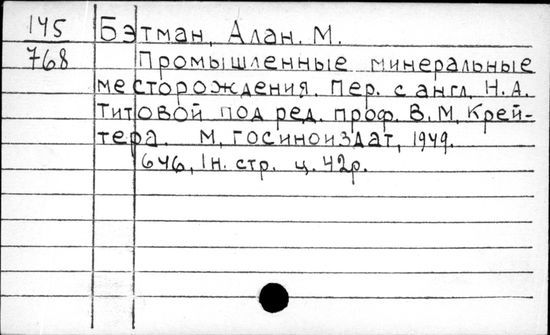 145 Бэтман, Алан. М.
768 Промышленные минеральные
месторождения. Пер. с англ. Н.А.
Титовой под ред. проф. В.М. Крей-
тера. М, Госиноиздат, 1949.
646, 1н. стр. ц. 42р.